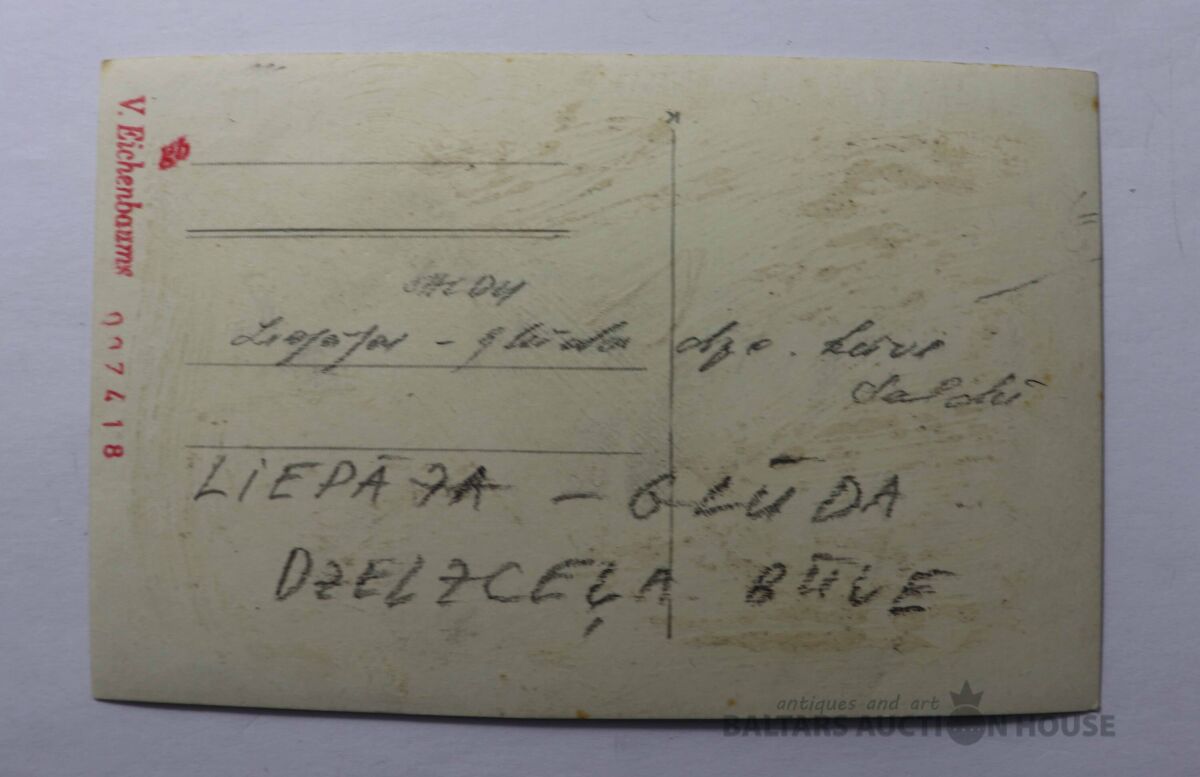 V. Eichenbaums
997418
Liepājas - Glūda dze. būve
Saldū
LIEPĀJA - GLŪDA
DZELZCEĻA BŪVE
antiques and art
BALTARS AUCTION HOUSE